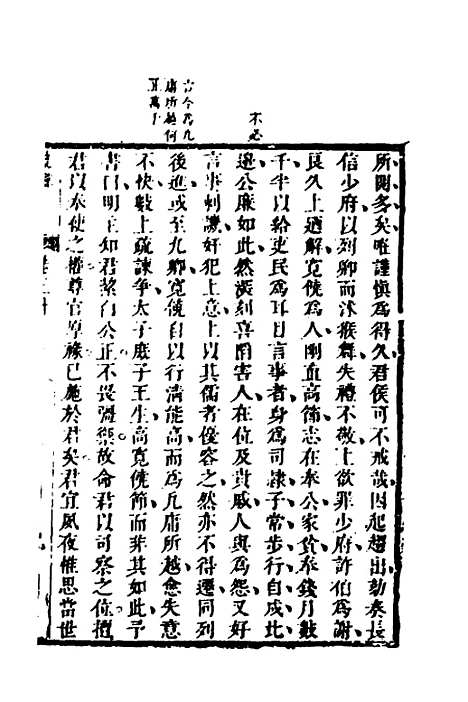 不必
古今為凡
庸所越何
止萬十
所關多矣唯謹慎為得久君侯可不戒哉因起趨出劾奏長
信少府以列卿而沐猴舞失禮不敬上欲罪少府許伯為謝
良久上廼解寬饒為人剛直高節志在奉公家貧奉錢月數
千半以給吏民為耳目言事者身為司隸子常步行自戍北
邊公廉如此然深刻喜陷害人在位及貴戚人與為怨又好
言事刺譏奸犯上意上以其儒者優容之然亦不得遷同列
後進或至九卿寬饒自以行清能高而為凡庸所越愈失意
不快數上疏諫爭太子庶子王生高寬饒節而非其如此予
書曰明主知君絜白公正不畏彊禦故命君以司察之位擅
君以奉使之權尊官厚祿已施於君矣君宜夙夜惟思當世